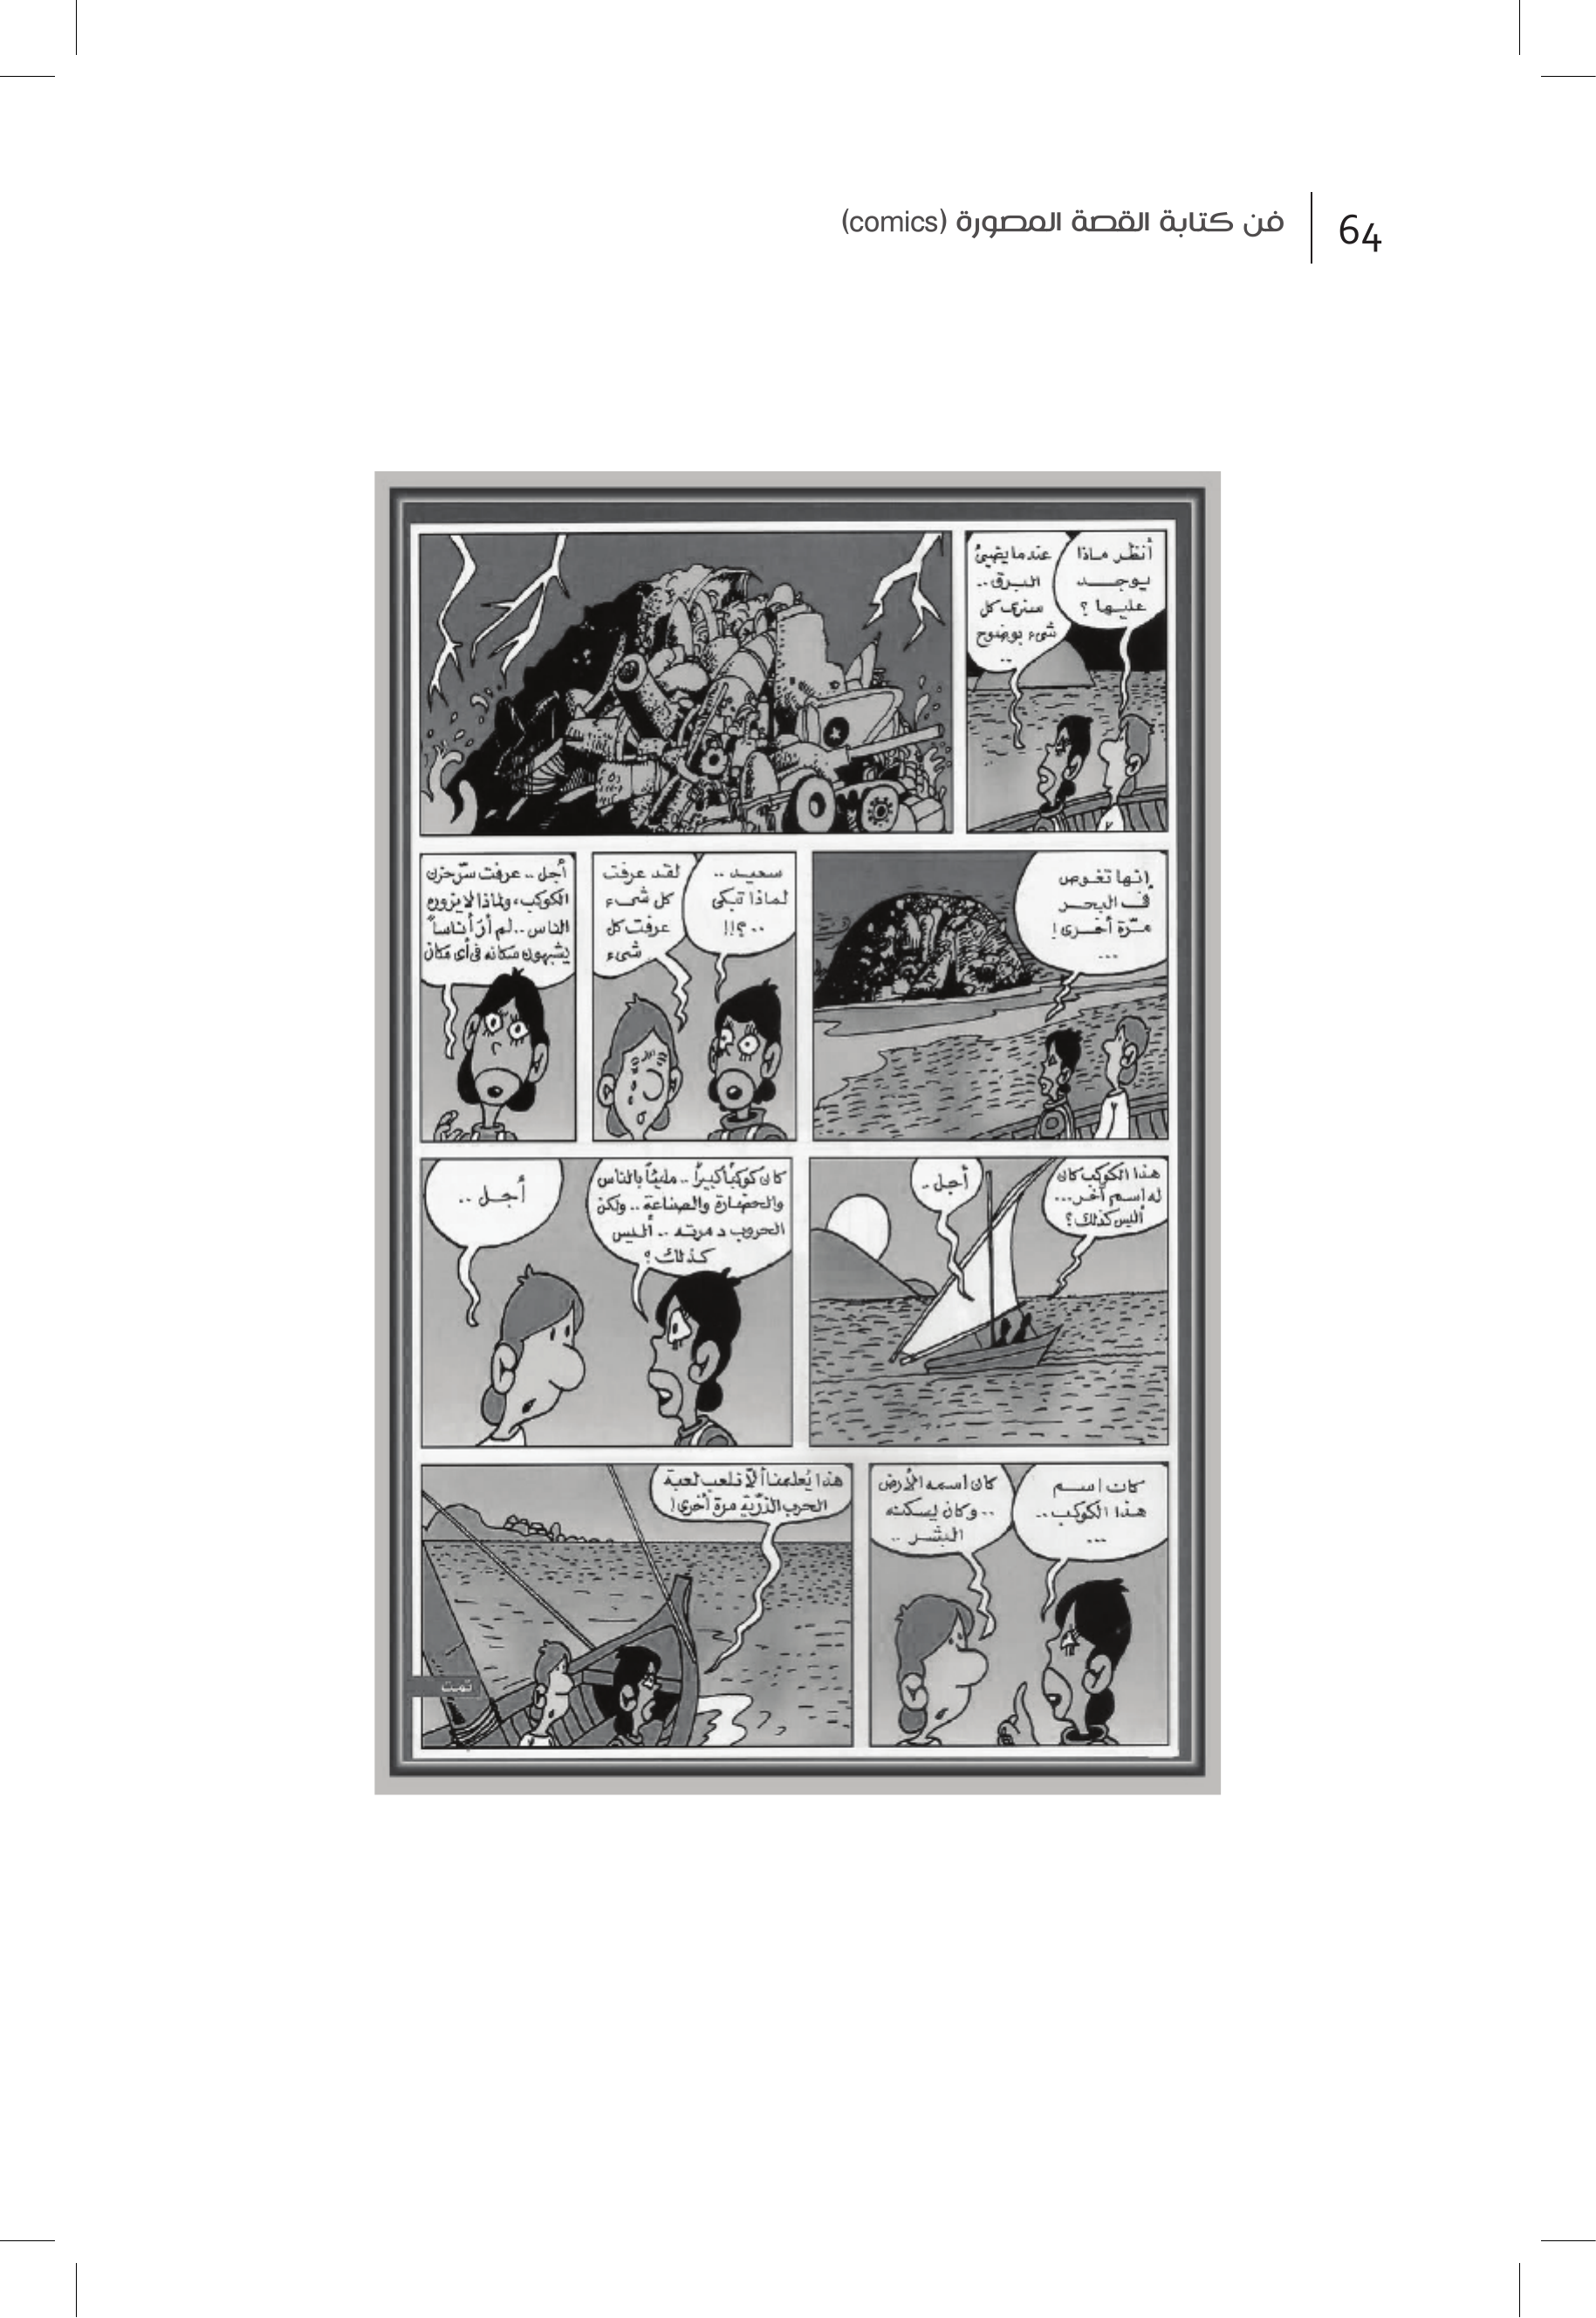 64
فن كتابة القصة المصورة (comics)
أنظر ماذا
يوجد
عليها ؟
عندما يضيئ
البرق ..
سنرى كل
شىء بوضوح
..
إنها تغوص
فى البحر
مرّة أخرى !
...
سعيد ..
لماذا تبكى
..؟!!
لقد عرفت
كل شىء
عرفت كل
شىء
أجل .. عرفت سرّ حزن
الكوكب، ولماذا لا يزوره
الناس .. لم أرَ أناساً
يشبهون سكانه فى أى مكان
هذا الكوكب كان
له اسم آخر...
أليس كذلك ؟
أجل ..
كان كوكباً كبيراً .. مليئاً بالناس
والحضارة والصناعة .. ولكن
الحروب دمرته .. أليس
كذلك ؟
أجل ..
كان اسم
هذا الكوكب ..
...
كان اسمه الأرض
.. وكان يسكنه
البشر ..
هذا يُعلمنا ألاّ نلعب لعبة
الحرب الذرّية مرة أخرى !
تمت